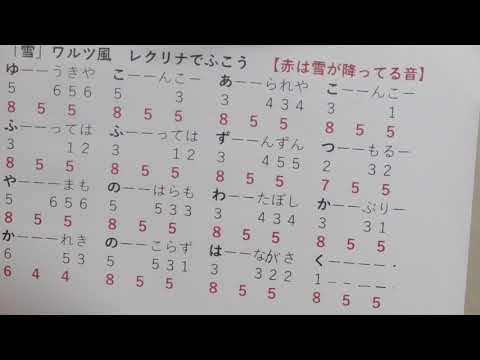 「雪」ワルツ風　レクリナでふこう　【赤は雪が降ってる音】
ゆーーうきや　こーーんこー　あーーられや　こーーんこー
5　656　5　3　3　434　3　1
8　5　5　8　5　5　8　5　5　8　5　5
ふーーっては　ふーーっては　ずーーんずん　つーーもるー
3　12　3　12　3　455　2　32
8　5　5　8　5　5　8　5　5　7　5　5
やーーまも　のーーはらも　わーーたぼし　かーーぶりー
5　656　5　533　3　434　3　31
8　5　5　8　5　5　8　5　5　8　5　5
かーーーれき　のーーこらず　はーーながさ　くーーーー・
6　53　5　531　3　322　1＿＿＿＿・
6　4　4　8　5　5　8　5　5　8　5　5